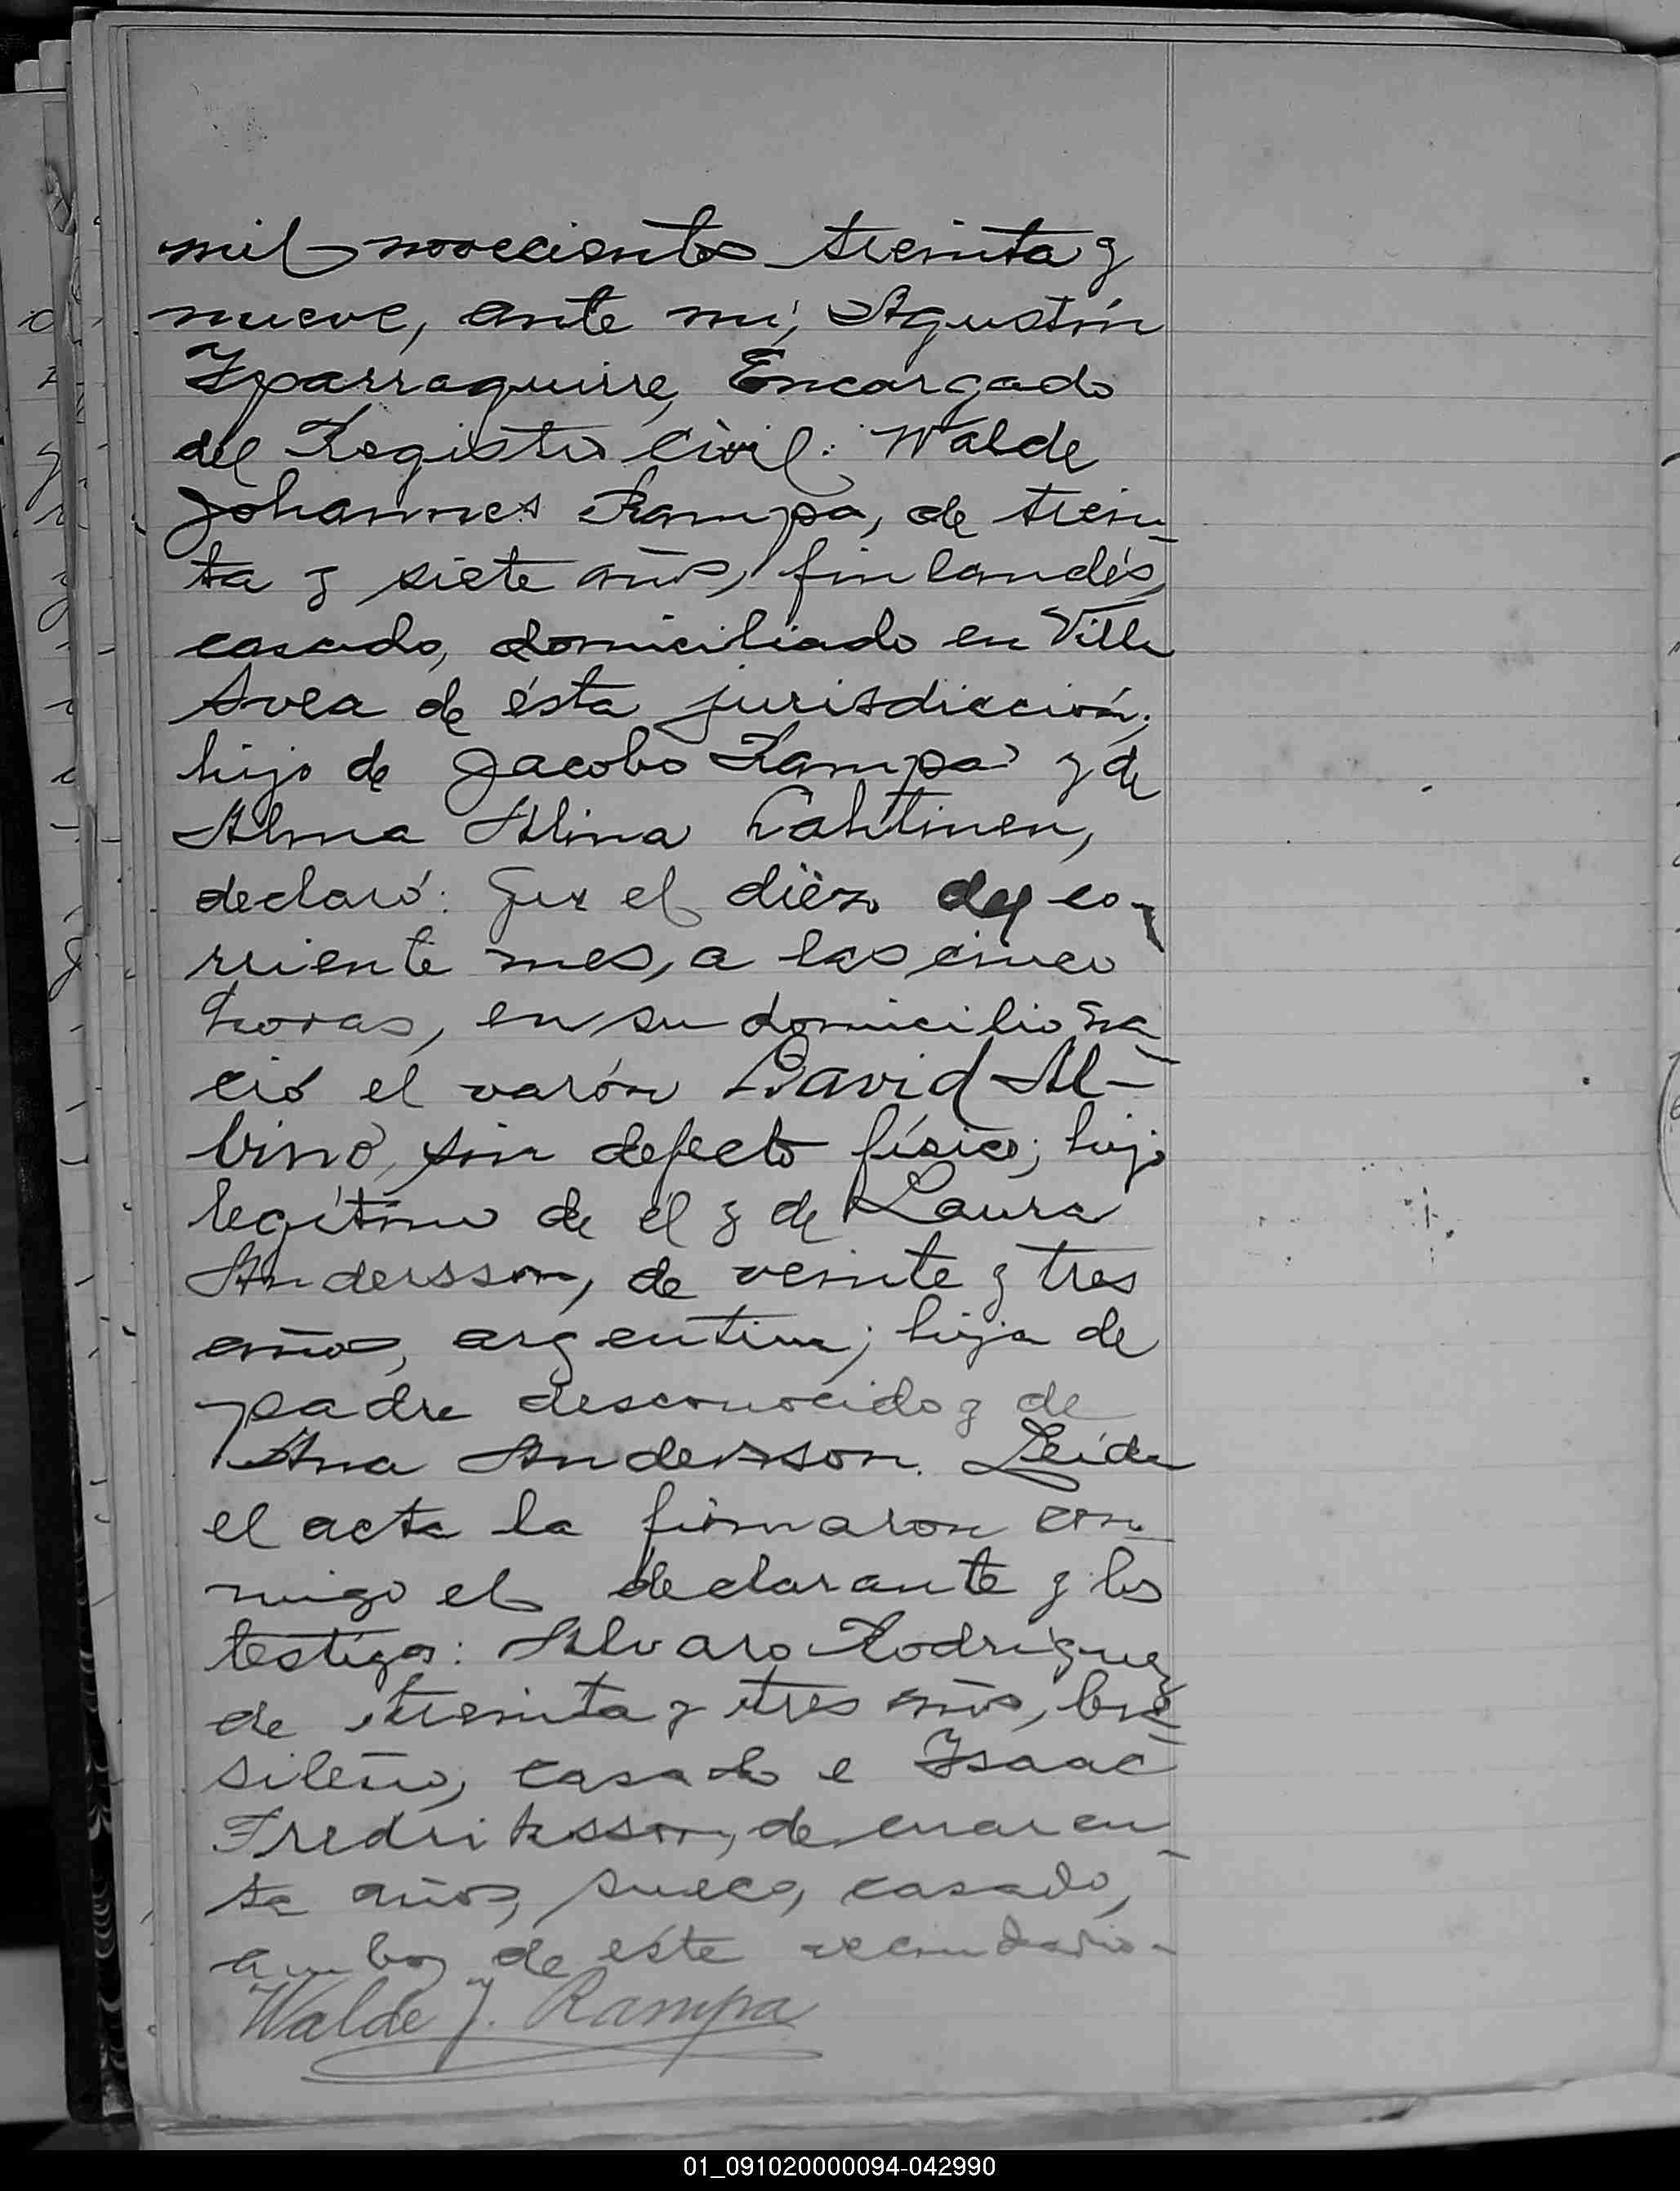 mil novecientos treinta y
nueve, ante mí, Agustín
Yparraguirre, Encargado
del Registro Civil: Walde
Johannes Rampa, de trein-
ta y siete años, finlandés,
casado, domiciliado en Villa
Svea de ésta jurisdicción;
hijo de Jacobo Rampa y de
Alma Alina Lahtinen,
declaró: Que el diez del co-
rriente mes, a las cinco
horas, en su domicilio na-
ció el varón David Al-
bino, sin defecto físico; hijo
legítimo de él y de Laura
Andersson, de veinte y tres
años, argentina; hija de
padre desconocido y de
Ana Andersson. Leída
el acta la firmaron con-
migo el declarante y los
testigos: Alvaro Rodriguez
de treinta y tres años, bra-
sileño, casado e Isaac
Fredriksson, de cuaren-
ta años, sueco, casado,
ambos de éste vecindario-
Walde J. Rampa
01_091020000094-042990